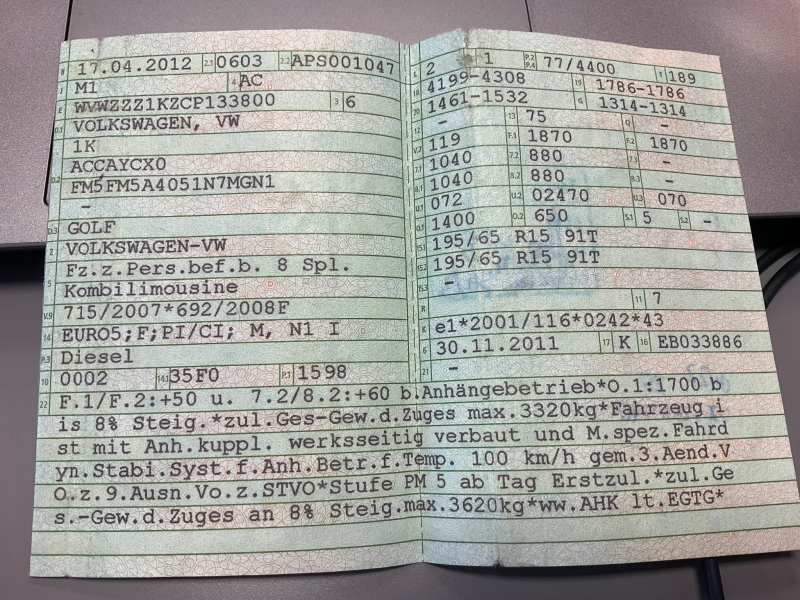 B 17.04.2012 2.1 0603 2.2 APS001047
J M1 4 AC
E WVWZZZ1KZCP133800 3 6
D.1 VOLKSWAGEN, VW
1K
D.2 ACCAYCX0
FM5FM5A4051N7MGN1
–
D.3 GOLF
2 VOLKSWAGEN-VW
Fz.z.Pers.bef.b. 8 Spl.
5 Kombilimousine
V.9 715/2007*692/2008F
14 EURO5;F;PI/CI; M, N1 I
P.3 Diesel
10 0002 14.1 35F0 P.1 1598
L 2 1 P.2 P.4 77/4400 T 189
18 4199-4308 19 1786-1786
20 1461-1532 G 1314-1314
12 – 13 75 Q –
V.7 119 F.1 1870 F.2 1870
7.1 1040 7.2 880 7.3 –
8.1 1040 8.2 880 8.3 –
U.1 072 U.2 02470 U.3 070
O.1 1400 O.2 650 S.1 5 S.2 –
15.1 195/65 R15 91T
15.2 195/65 R15 91T
15.3 –
R 11 7
K e1*2001/116*0242*43
6 30.11.2011 17 K 16 EB033886
21 –
22 F.1/F.2:+50 u. 7.2/8.2:+60 b.Anhängebetrieb*O.1:1700 b
is 8% Steig.*zul.Ges-Gew.d.Zuges max.3320kg*Fahrzeug i
st mit Anh.kuppl. werksseitig verbaut und M.spez.Fahrd
yn.Stabi.Syst.f.Anh.Betr.f.Temp. 100 km/h gem.3.Aend.V
O.z.9.Ausn.Vo.z.STVO*Stufe PM 5 ab Tag Erstzul.*zul.Ge
s.-Gew.d.Zuges an 8% Steig.max.3620kg*ww.AHK lt.EGTG*